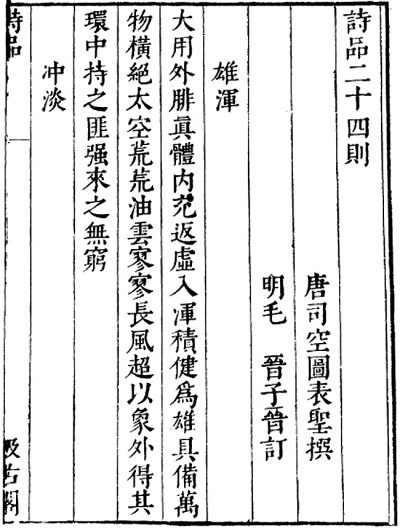 詩品二十四則
唐司空圖表聖撰
明毛　晉子晉訂
雄渾
大用外腓眞體内充返虛入渾積健爲雄具備萬
物橫絕太空荒荒油雲寥寥長風超以象外得其
環中持之匪强來之無窮
冲淡
詩品
汲古閣